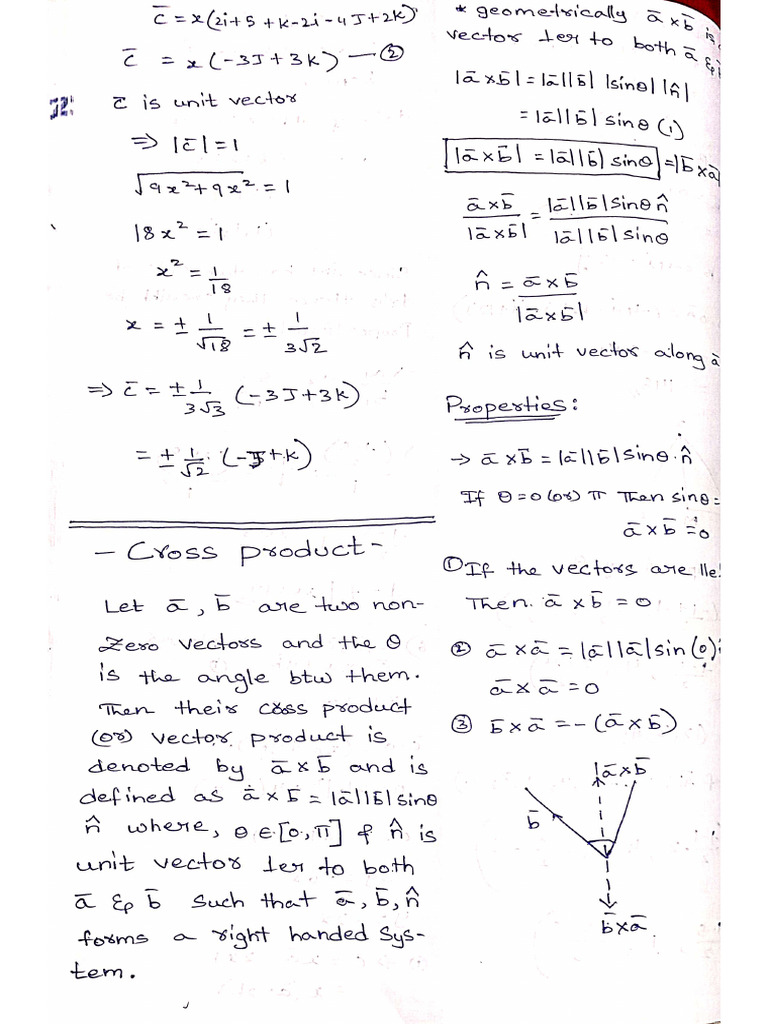 c̄ = x(2i+5+k-2i-4J+2k)
c̄ = x(-3J+3k) —②
c̄ is unit vector
⇒ |c̄| = 1
√9x²+9x² = 1
18x² = 1
x² = 1/18
x = ± 1/√18 = ± 1/3√2
⇒ c̄ = ± 1/3√3 (-3J+3k)
= ± 1/√2 (-J+k)
- Cross product -
Let ā, b̄ are two non-
zero vectors and the θ
is the angle btw them.
Then their coss product
(or) vector product is
denoted by ā×b̄ and is
defined as ā×b̄ = |ā||b̄| sinθ
n̂ where, θ∈[0,π] & n̂ is
unit vector ⊥er to both
ā & b̄ such that ā, b̄, n̂
forms a right handed sys-
tem.
* geometrically ā×b̄ is
vector ⊥er to both ā &
|ā×b̄| = |ā||b̄| |sinθ| |n̂|
= |ā||b̄| sinθ (1)
|ā×b̄| = |ā||b̄| sinθ = |b̄×ā
ā×b̄/|ā×b̄| = |ā||b̄|sinθ n̂/|ā||b̄|sinθ
n̂ = ā×b̄/|ā×b̄|
n̂ is unit vector along ā
Properties:
→ ā×b̄ = |ā||b̄|sinθ.n̂
If θ=0 (or) π Then sinθ=
ā×b̄ = 0
① If the vectors are lle
Then. ā×b̄ = 0
② ā×ā = |ā||ā|sin(0)
ā×ā = 0
③ b̄×ā = -(ā×b̄)
|ā×b̄
b̄
b̄×ā